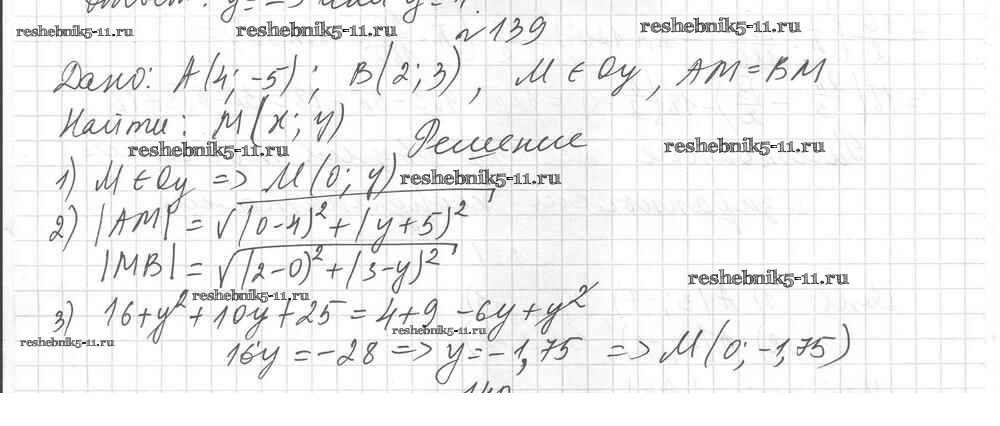 Ответ: y = -3 или y =
reshebnik5-11.ru reshebnik5-11.ru №139 reshebnik5-11.ru
Дано: A(4; -5); B(2; 3), M ∈ Oy, AM = BM
Найти: M(x; y)
reshebnik5-11.ru Решение reshebnik5-11.ru
1) M ∈ Oy => M(0; y) reshebnik5-11.ru
2) |AM| = √(0-4)² + (y+5)²
|MB| = √(2-0)² + (3-y)² reshebnik5-11.ru
reshebnik5-11.ru
3) 16+y²+10y+25 = 4+9-6y+y²
reshebnik5-11.ru reshebnik5-11.ru
16y = -28 => y = -1,75 => M(0; -1,75)
140